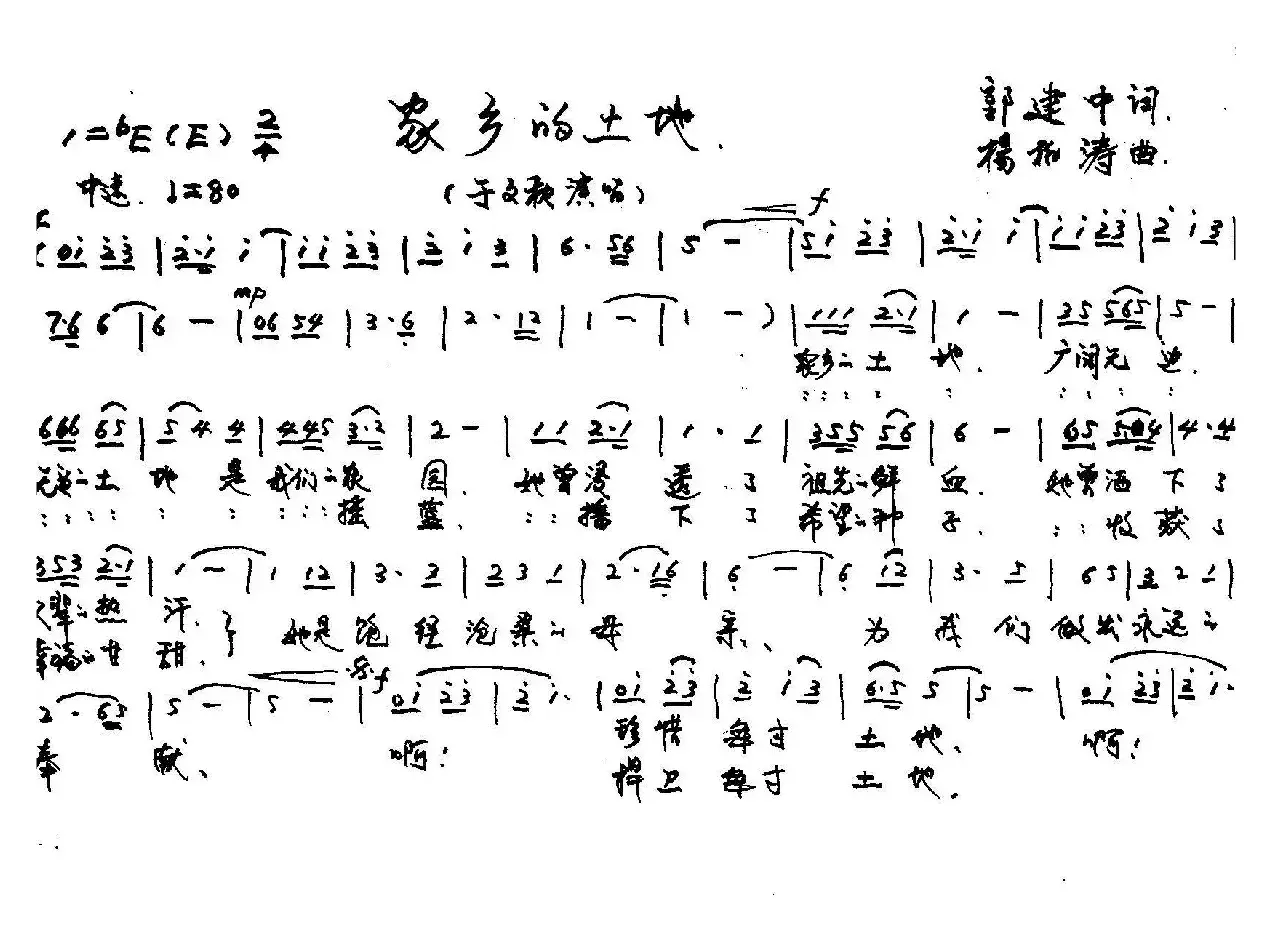 家乡的土地.
郭建中词.
1=♭E(E) 2/4
杨柏涛曲.
中速. ♩=80 (于文歌演唱)
f
0i 2̇3̇ | 2̇·i i | ii 2̇3̇ | 2̇ i 3 | 6·56 | 5 - | 5i 2̇3̇ | 2̇·i i | ii 2̇3̇ | 2̇ i 3 |
mp
7·6 6 | 6 - | 06 54 | 3·6 | 2·12 | 1 - | 1 - ) | 111 2·1 | 1 - | 35 565 | 5 - |
家乡的土地. 广阔无边.
: : : : : : : : :
666 65 | 5 4 4 | 445 3·2 | 2 - | 11 2·1 | 1·1 | 355 56 | 6 - | 65 504 | 4·4
土地是我们的家园. 她曾浸透了祖先的鲜血. 她曾洒下了
: : : : : : : : : 摇篮. : : 播下了希望的种子. : : 收获了
353 2·1 | 1 - | 1 12 | 3·2 | 23 1 | 2·16 | 6 - | 6 12 | 3·5 | 65 | 3 2 1 |
辈的热汗. } 她是饱经沧桑的母亲、 为我们做出永远的
的甘甜.
f
2·65 | 5 - | 5 - | 0i 2̇3̇ | 2̇i· | 0i 2̇3̇ | 2̇ i3 | 6·5 5 | 5 - | 0i 2̇3̇ | 2̇i·
奉献、 啊! 珍惜每寸土地、 啊!
捍卫每寸土地.